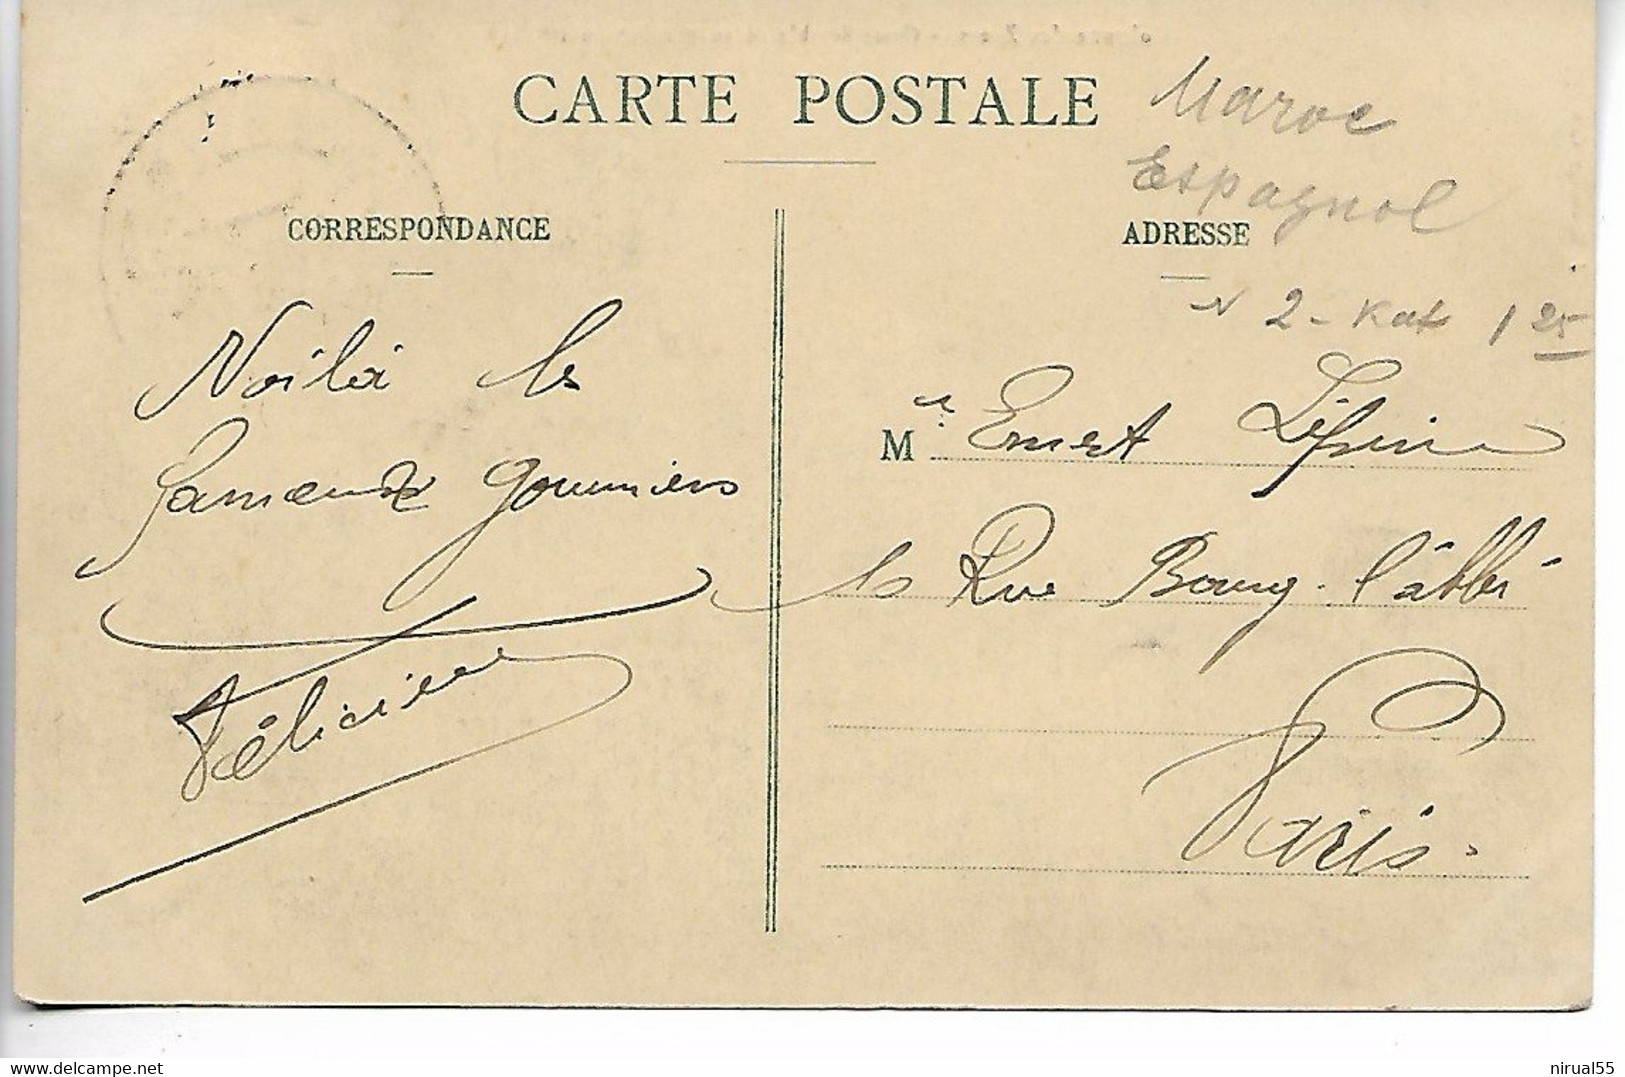 CARTE POSTALE
Maroc
Espagnol
CORRESPONDANCE
ADRESSE
N 2 - Kat 1 25
Voilà les
fameux goumiers
Félicien
Mr Ernest Lépine
Rue Bourg-l'abbé
Paris.
nirual55